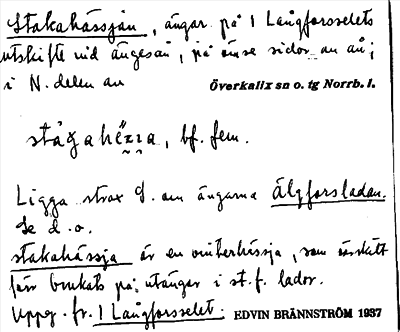 Stakahässjan, ängar på 1 Långforsselets
utskifte vid ängesån, på ömse sidor om ån;
i N. delen av Överkalix sn o. tg Norrb. l.
bf. fem.
Ligga strax S. om ängarna Älgforsladan.
Se d. o.
stakahässja är en vinterhässja, som särskilt
förr brukats på utängar i st. f. lador.
Uppg. fr. 1 Långforsselet. EDVIN BRÄNNSTRÖM 1937